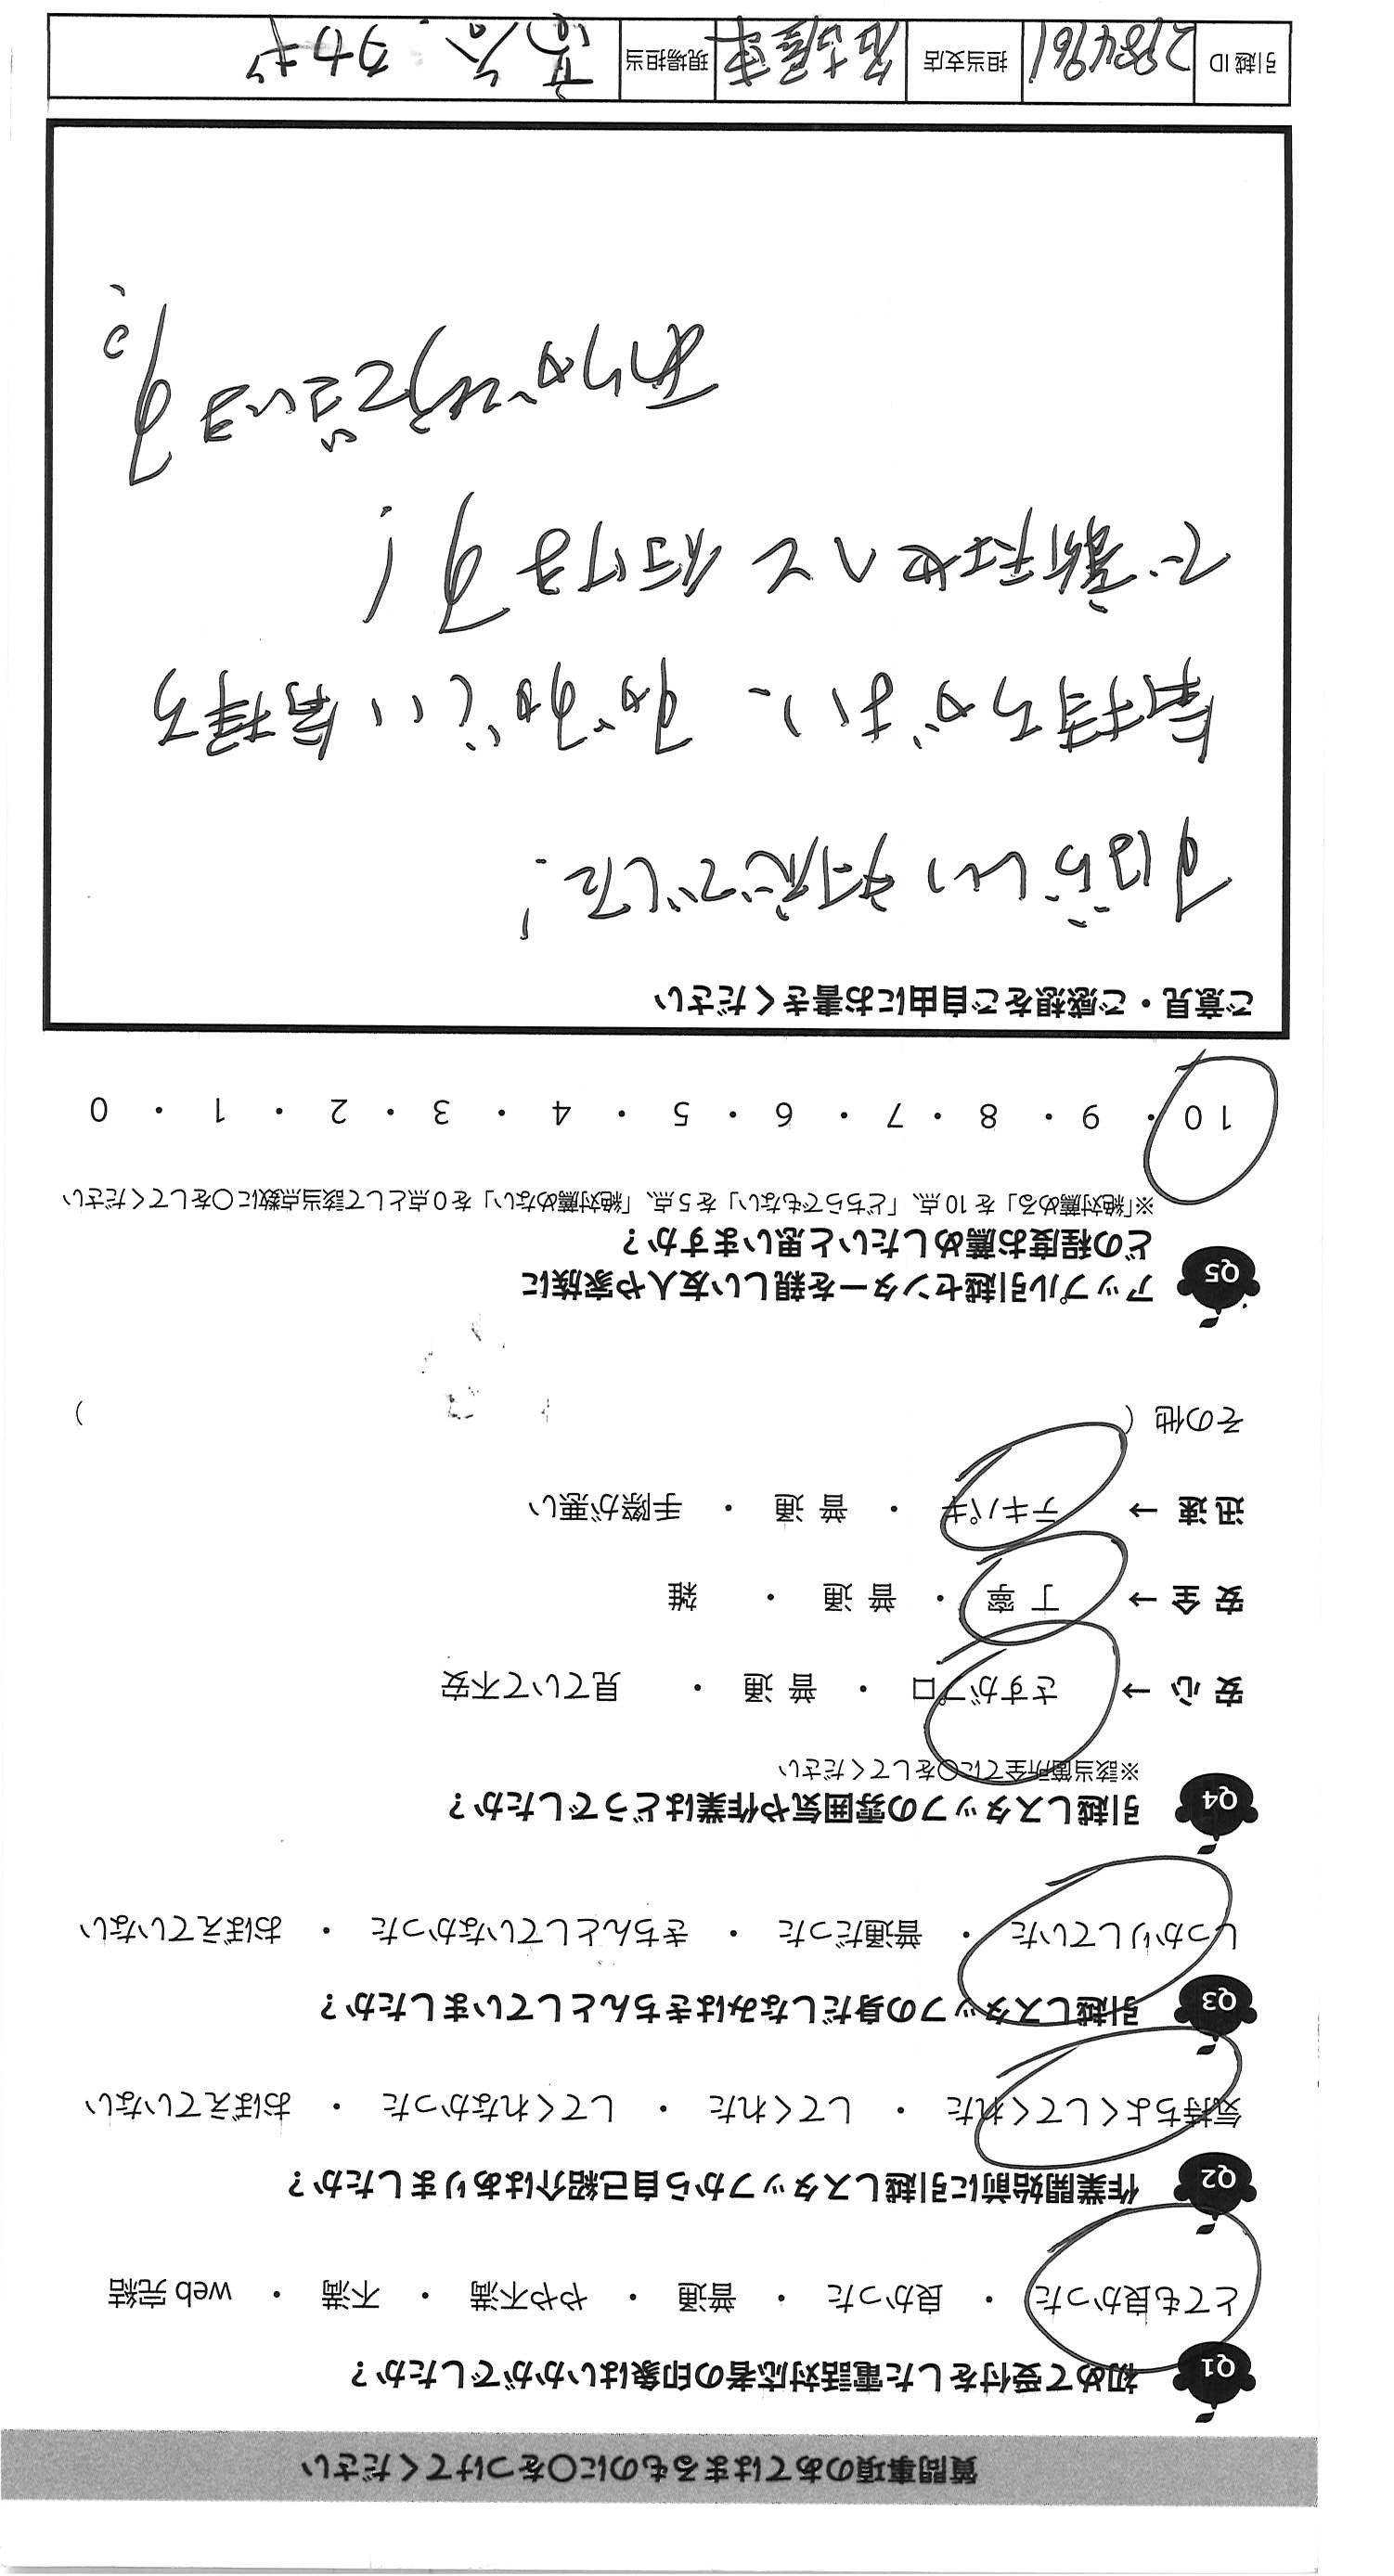 質問事項のあてはまるものに○をつけてください
Q1 初めて受付をした電話対応者の印象はいかがでしたか？
とても良かった ・ 良かった ・ 普通 ・ やや不満 ・ 不満 ・ web 完結
Q2 作業開始前に引越しスタッフから自己紹介はありましたか？
気持ちよくしてくれた ・ してくれた ・ してくれなかった ・ おぼえていない
Q3 引越しスタッフの身だしなみはきちんとしていましたか？
しっかりしていた ・ 普通だった ・ きちんとしていなかった ・ おぼえていない
Q4 引越しスタッフの雰囲気や作業はどうでしたか？
※該当箇所全てに○をしてください
安 心 → さすがプロ ・ 普 通 ・ 見ていて不安
安 全 → 丁 寧 ・ 普 通 ・ 雑
迅 速 → テキパキ ・ 普 通 ・ 手際が悪い
その他（ ）
Q5 アップル引越センターを親しい友人や家族に
どの程度お薦めしたいと思いますか？
※「絶対薦める」を 10 点、「どちらでもない」を 5 点、「絶対薦めない」を 0 点として該当点数に○をしてください
10 ・ 9 ・ 8 ・ 7 ・ 6 ・ 5 ・ 4 ・ 3 ・ 2 ・ 1 ・ 0
ご意見・ご感想をご自由にお書きください
すばらしい対応でした！
気持ちがよい、すがすがしい気持ち
で新社会へ行けます！
ありがとうございます。
引越 ID 2984961 担当支店 名古屋 現場担当 タカギ